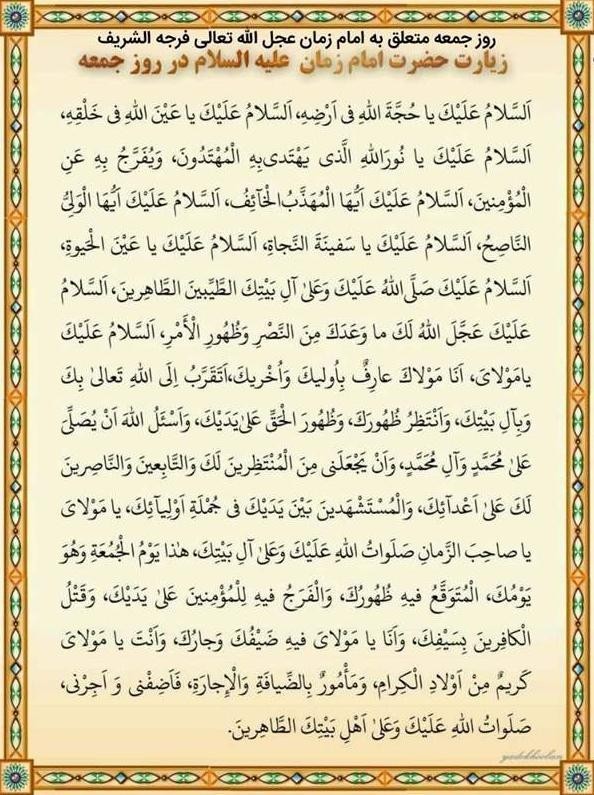 روز جمعه متعلق به امام زمان عجل الله تعالی فرجه الشریف
زیارت حضرت امام زمان علیه السلام در روز جمعه
اَلسَّلامُ عَلَیْكَ یا حُجَّةَ اللهِ فی اَرْضِهِ، اَلسَّلامُ عَلَیْكَ یا عَیْنَ اللهِ فی خَلْقِهِ،
اَلسَّلامُ عَلَیْكَ یا نُورَاللهِ الَّذی یَهْتَدی‌بِهِ الْمُهْتَدُونَ، وَیُفَرَّجُ بِهِ عَنِ
الْمُؤْمِنینَ، اَلسَّلامُ عَلَیْكَ اَیُّهَا الْمُهَذَّبُ‌الْخآئِفُ، اَلسَّلامُ عَلَیْكَ اَیُّهَا الْوَلِیُّ
النّاصِحُ، اَلسَّلامُ عَلَیْكَ یا سَفینَةَ النَّجاةِ، اَلسَّلامُ عَلَیْكَ یا عَیْنَ الْحَیوةِ،
اَلسَّلامُ عَلَیْكَ صَلَّی‌اللهُ عَلَیْكَ وَعَلیٰ آلِ بَیْتِكَ الطَّیِّبینَ الطَّاهِرینَ، اَلسَّلامُ
عَلَیْكَ عَجَّلَ اللهُ لَكَ ما وَعَدَكَ مِنَ النَّصْرِ وَظُهُورِ الْأَمْرِ، اَلسَّلامُ عَلَیْكَ
یامَوْلایَ، اَنَا مَوْلاكَ عارِفٌ بِاُولیكَ وَاُخْریكَ،اَتَقَرَّبُ اِلَی اللهِ تَعالیٰ بِكَ
وَبِآلِ بَیْتِكَ، وَاَنْتَظِرُ ظُهُورَكَ، وَظُهُورَ الْحَقِّ عَلیٰ‌یَدَیْكَ، وَاَسْئَلُ اللهَ اَنْ یُصَلِّیَ
عَلیٰ مُحَمَّدٍ وَآلِ مُحَمَّدٍ، وَاَنْ یَجْعَلَنی مِنَ الْمُنْتَظِرینَ لَكَ وَالتّابِعینَ وَالنّاصِرینَ
لَكَ عَلیٰ اَعْدآئِكَ، وَالْمُسْتَشْهَدینَ بَیْنَ یَدَیْكَ فی جُمْلَةِ اَوْلِیآئِكَ، یا مَوْلایَ
یا صاحِبَ الزَّمانِ صَلَواتُ اللهِ عَلَیْكَ وَعَلیٰ آلِ بَیْتِكَ، هٰذا یَوْمُ الْجُمُعَةِ وَهُوَ
یَوْمُكَ، الْمُتَوَقَّعُ فیهِ ظُهُورُكَ، وَالْفَرَجُ فیهِ لِلْمُؤْمِنینَ عَلیٰ یَدَیْكَ، وَقَتْلُ
الْكافِرینَ بِسَیْفِكَ، وَاَنَا یا مَوْلایَ فیهِ ضَیْفُكَ وَجارُكَ، وَاَنْتَ یا مَوْلایَ
كَریمٌ مِنْ اَوْلادِ الْكِرامِ، وَمَأْمُورٌ بِالضِّیافَةِ وَالْإِجارَةِ، فَاَضِفْنی وَ اَجِرْنی،
صَلَواتُ اللهِ عَلَیْكَ وَعَلیٰ اَهْلِ بَیْتِكَ الطَّاهِرینَ.